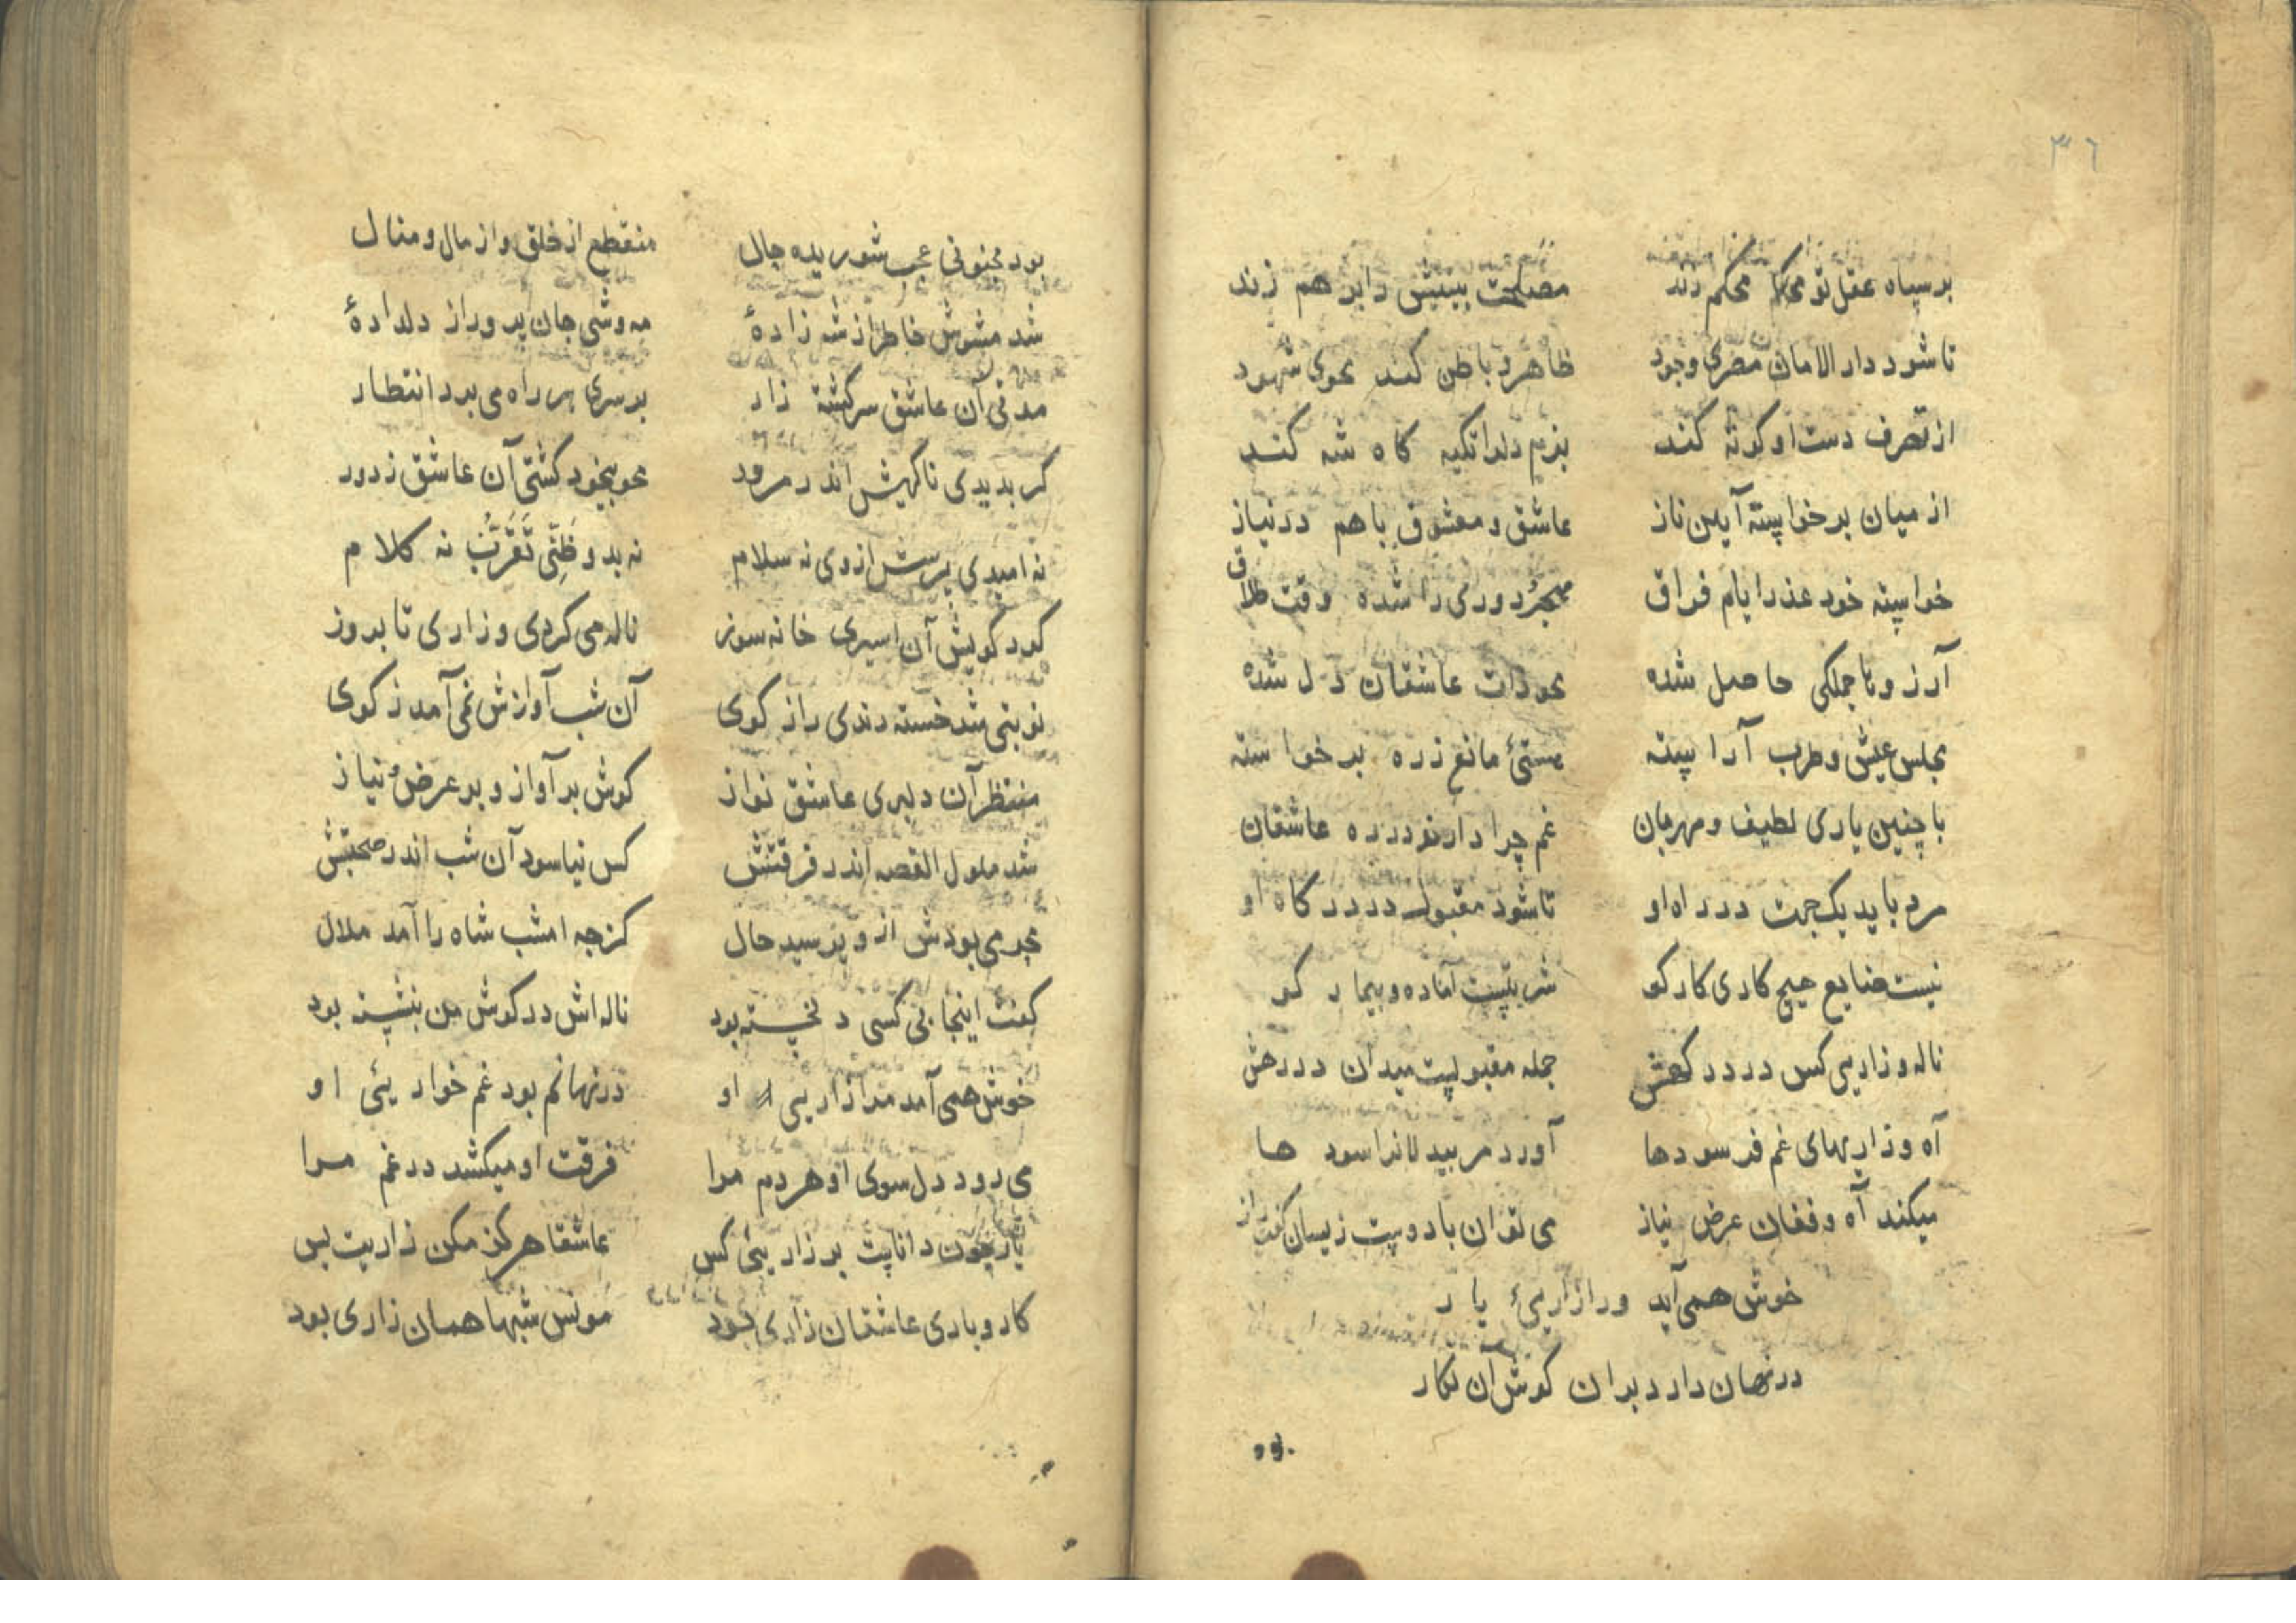 ٣٦
بر سپاه عقل تو محکم زند مصلحت بینیش را بر هم زند
تا شود دار الامان مصری وجود ظاهر و باطن کند محوی شهود
از تصرف دست او کوته کند بزم دلرا تکیه کاه شه کند
از میان برخواسته آیین ناز عاشق و معشوق با هم در نیاز
خواسته خود عذر ایام فراق دوری را شده وقت طلاق
آرزوها جملکی حاصل شده محو ذات عاشقان دل شده
مجلس عیش و طرب آراسته مستئ مانع زره برخواسته
با چنین یاری لطیف و مهربان غم چرا دارند در ره عاشقان
مرد باید یک جهت در راه او تا شود مقبول در درکاه او
نیست ضایع هیچ کاری کار کو شربتیست آماده و بیمار کو
ناله و زاریی کس در درکهش جمله مقبولیست میدان در رهش
آه و زاریهای غم فرسودها آورد مر بیدلانرا سودها
میکند آه و فغان عرض نیاز می توان با دوست زیسان کفت راز
خوش همی آید ورا زاریئ یار
در نهان دارد بران کوش آن نکار
بود
بود مجنونی عجب شوریده حال منقطع از خلق و از مال و منال
شد مشوش خاطر از شه زادهٔ مه وشی جان پرور از دلدادهٔ
مدتی آن عاشق سرکشته زار بر سری هر راه می برد انتظار
کر بدیدی ناکهش اندر مرور محو بیخود کشتی آن عاشق ز دور
نه امیدی پرسش از وی نه سلام نه بدو ظنی تقرب نه کلام
کرد کویش آن اسیری خانه سوز ناله می کردی و زاری تا بروز
نوبتی شد خسته رندی راز کوی آن شب آوازش نمی آمد ز کوی
منتظر آن دلبری عاشق نواز کوش بر آواز و بر عرض نیاز
شد ملول القصه اندر فرقتش کس نیاسود آن شب اندر صحبتش
محرمی بودش ازو پرسید حال کز چه امشب شاه را آمد ملال
کفت اینجا بی کسی دلخسته بود ناله اش در کوش من بنشسته بود
خوش همی آمد مرا زاریی او در نهانم بود غم خواریئی او
می رود دل سوی او هر دم مرا فرقت او میکشد در غم مرا
یار چون داناست بر زاریئی کس عاشقا هرکز مکن زاریت بس
کار و باری عاشقان زاری بود مونس شبها همان زاری بود